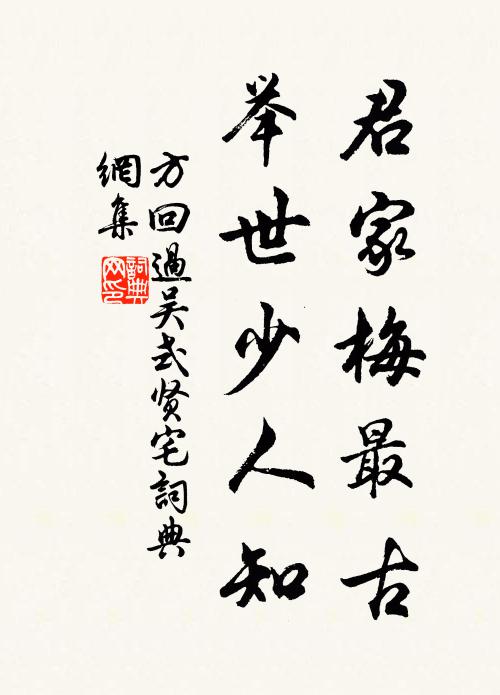 君家梅最古
举世少人知
方回過吴式贤宅詞典
網集
詞典
网印